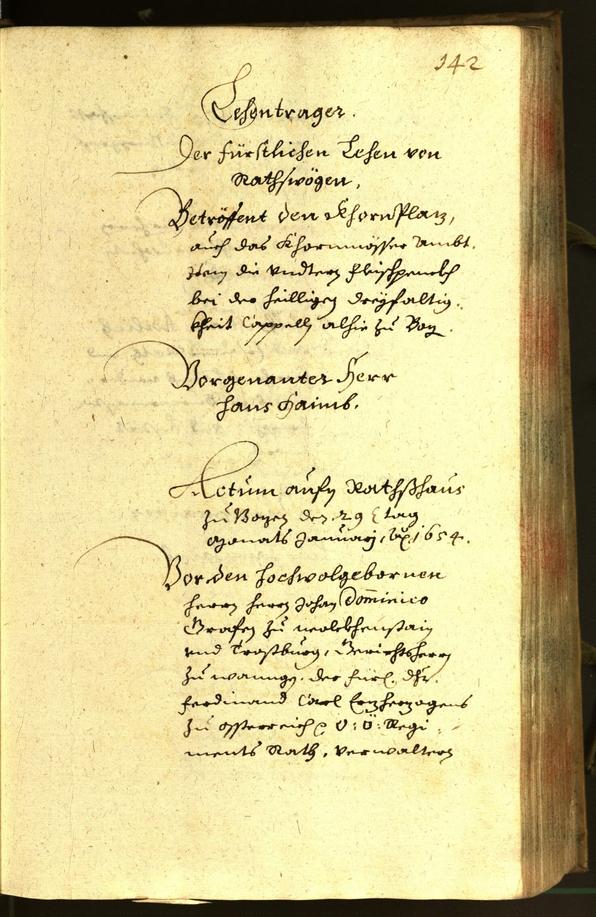 142
Lehentrager.
Der fürstlichen Lehen von
Rathswögen,
Betröffent den Khorn Plaz,
auch das Khornmösser Ambt.
Item die undtern Fleischpenckh
bei der heilligen Dreÿfaltig-
kheit Cappelln alhie zu Bozn.
Vorgenanter Herr
Hans Haimb.
Actum aufn Rathshaus
zu Bozen den 29 tag
Monats Januarj, 1654.
Vor den hochwolgebornen
herrn herrn Johan Dominico
Grafen zu Wolckhenstain
und Trostburg, Gerichtsherrn
zu Wanngg. der fürl. Dhr.
Ferdinand Carl Erzherzogens
zu Össterreich O: Ö: Regi-
ments Rath, verwaltern